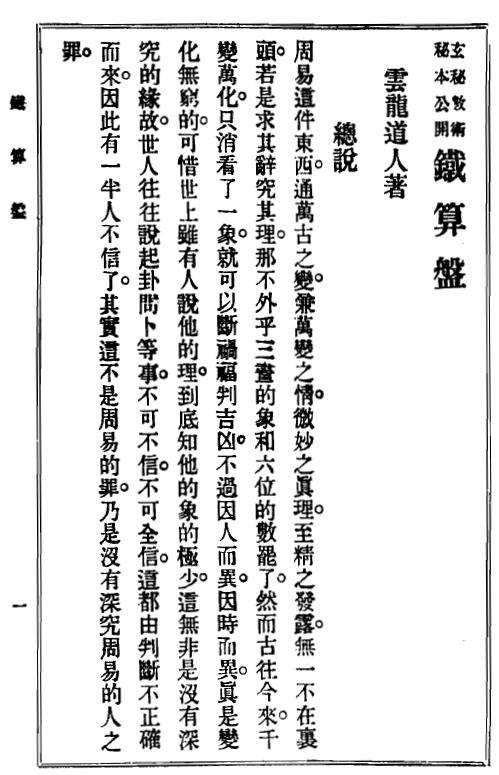 玄秘數術
秘本公開
鐵算盤
雲龍道人著
總說
周易這件東西。通萬古之變。兼萬變之情。微妙之眞理。至精之發露。無一不在裏
頭。若是求其辭究其理。那不外乎三畫的象和六位的數罷了。然而古往今來。千
變萬化。只消看了一象。就可以斷禍福判吉凶。不過因人而異。因時而異。眞是變
化無窮的。可惜世上雖有人說他的理。到底知他的象的極少。這無非是沒有深
究的緣故。世人往往說起卦問卜等事。不可不信。不可全信。這都由判斷不正確
而來。因此有一半人不信了。其實這不是周易的罪。乃是沒有深究周易的人之
罪。
鐵算盤
一